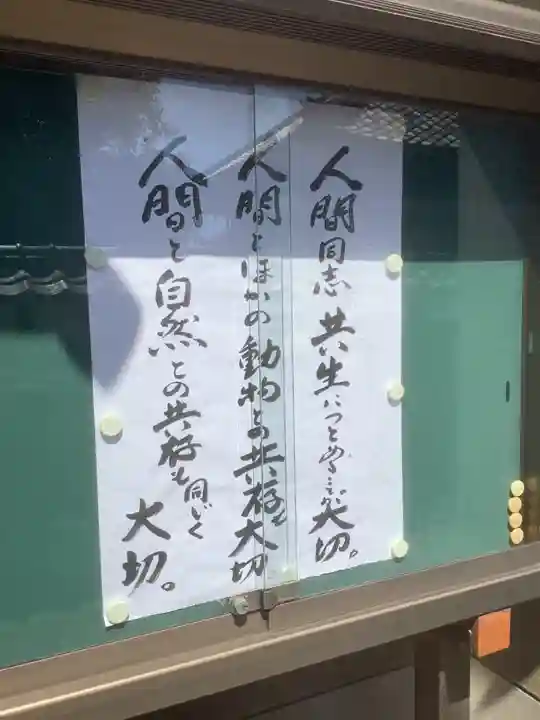 人間同志共生につとめることが大切。
人間とほかの動物との共存も大切
人間と自然との共存も同じく大切。